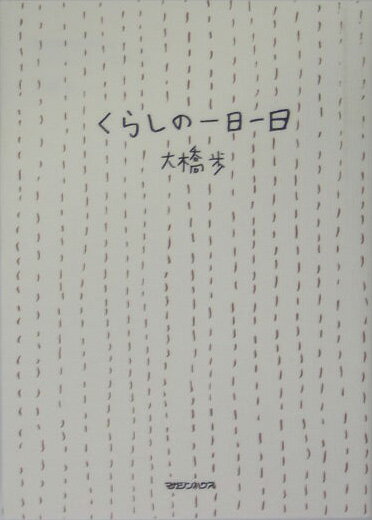 くらしの一日一日
大橋歩
マガジンハウス